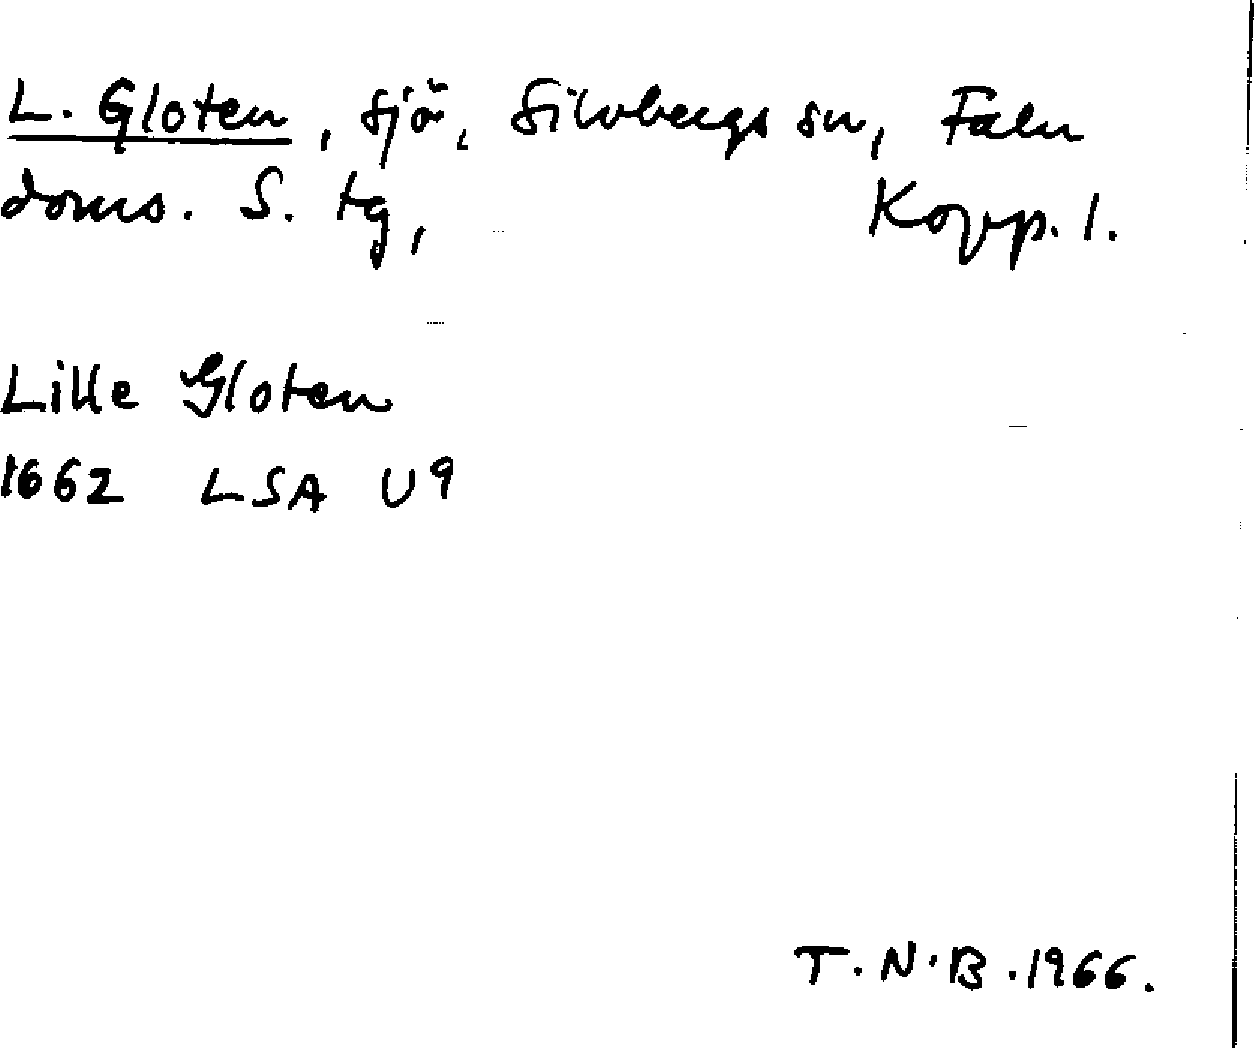 L. Gloten, sjö, Silvbergs sn, Falu
doms. S. tg, Kopp. l.
Lille Gloten
1662 LSA U9
T.N.B. 1966.